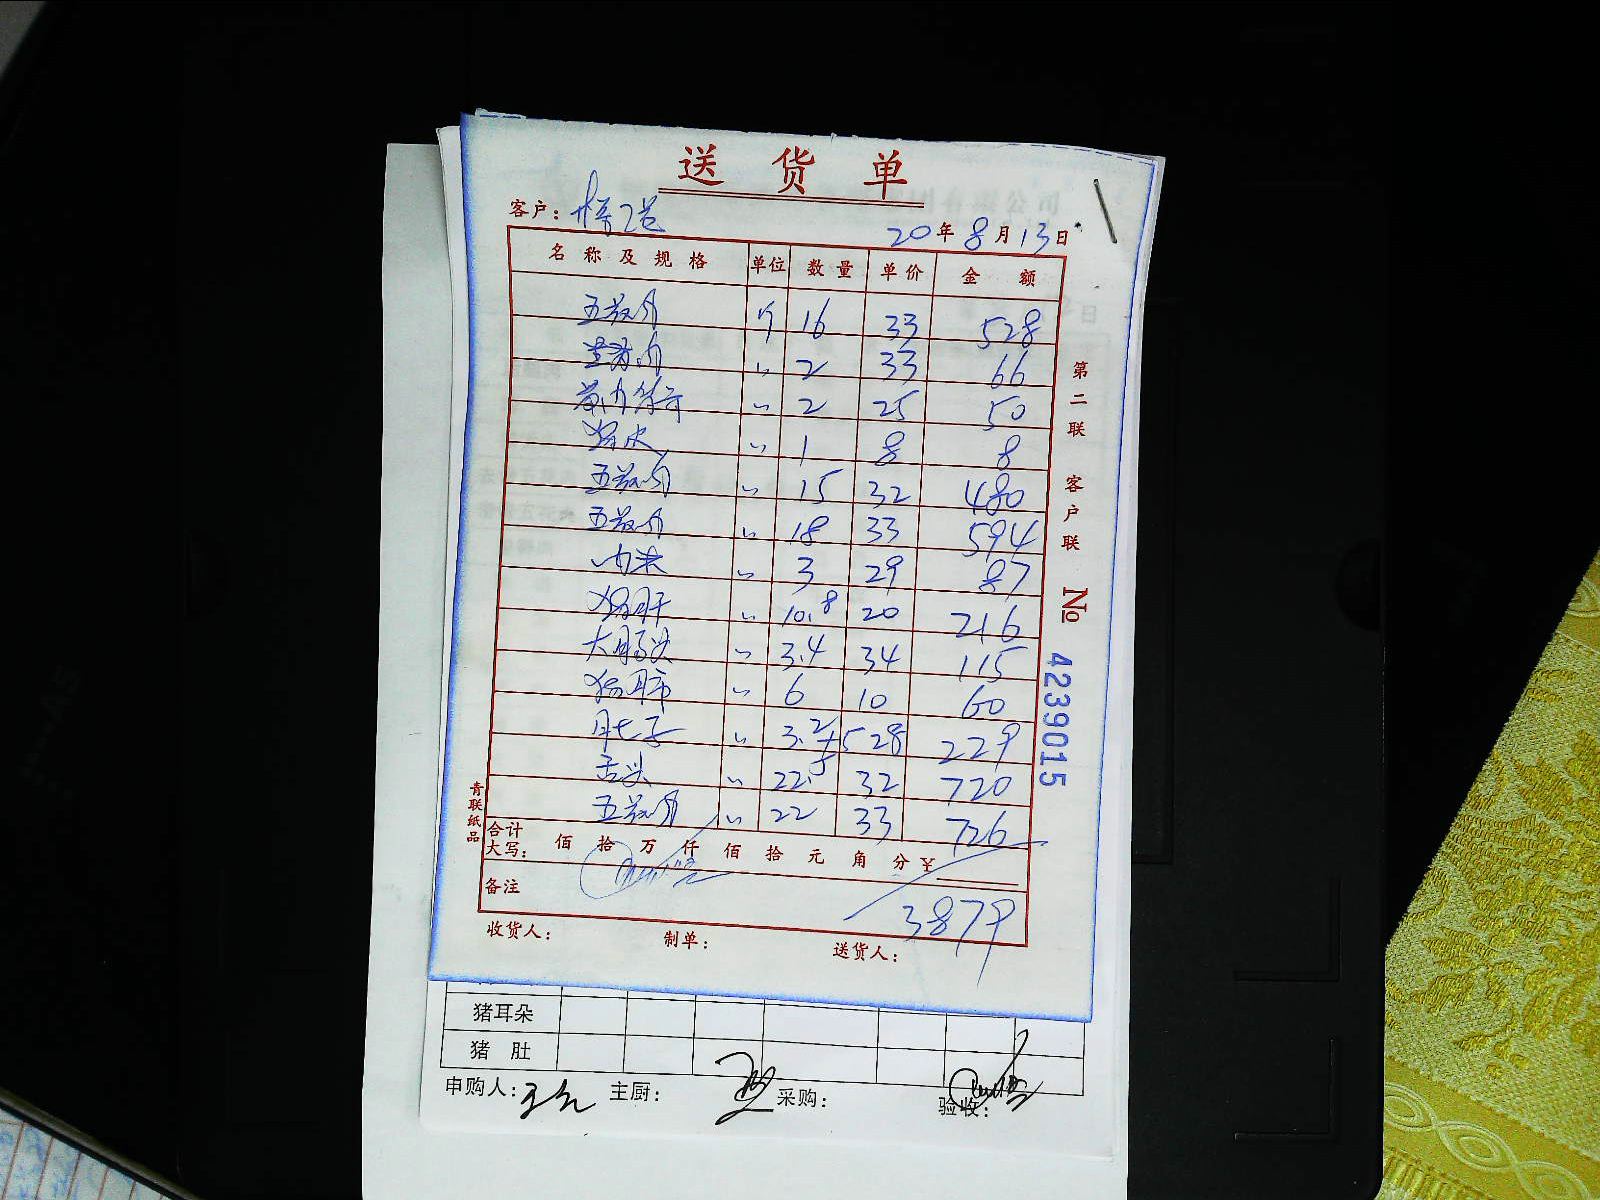 送货单
客户:
20年8月13日
名称及规格 单位 数量 单价 金额
五花肉 斤 16 33 528
〃 2 33 66
〃 2 25 50
猪皮 〃 1 8 8
五花肉 〃 15 32 480
五花肉 〃 18 33 594
肉末 〃 3 29 87
猪肝 〃 10.8 20 216
大肠头 〃 3.4 34 115
猪肺 〃 6 10 60
肚子 〃 528 229
舌头 〃 22.5 32 720
五花肉 〃 22 33 726
合计大写: 佰 拾 万 仟 佰 拾 元 角 分 ¥
备注 3879
收货人: 制单: 送货人:
第二联 客户联
№ 4239015
青联纸品
猪耳朵
猪肚
申购人: 主厨: 采购: 验收: